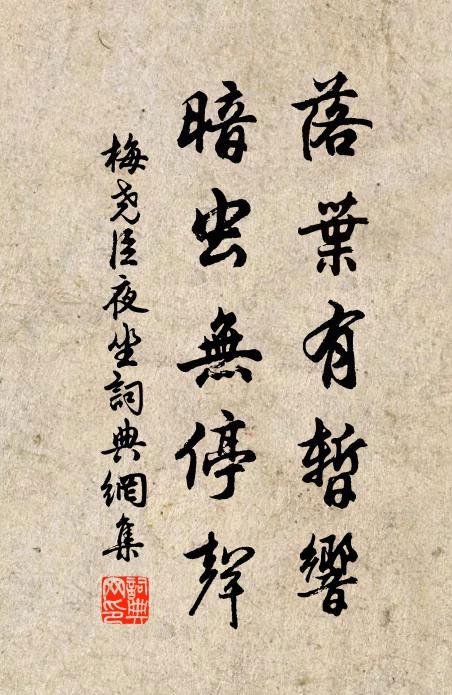 落葉有暫響
暗虫無停聲
梅堯臣夜坐詞典網集
詞典网印